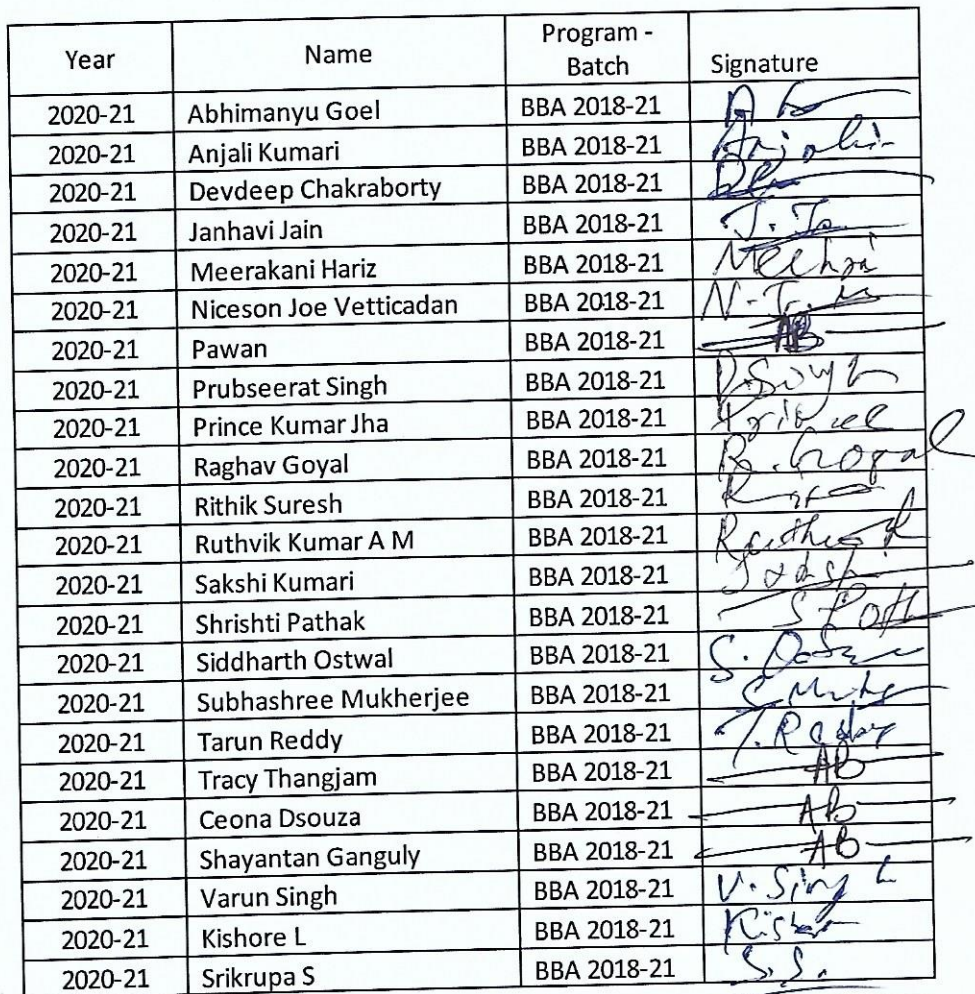 Year Name Program - Batch Signature
2020-21 Abhimanyu Goel BBA 2018-21
2020-21 Anjali Kumari BBA 2018-21 Anjali
2020-21 Devdeep Chakraborty BBA 2018-21
2020-21 Janhavi Jain BBA 2018-21
2020-21 Meerakani Hariz BBA 2018-21
2020-21 Niceson Joe Vetticadan BBA 2018-21
2020-21 Pawan BBA 2018-21 AB
2020-21 Prubseerat Singh BBA 2018-21 P.Singh
2020-21 Prince Kumar Jha BBA 2018-21
2020-21 Raghav Goyal BBA 2018-21
2020-21 Rithik Suresh BBA 2018-21
2020-21 Ruthvik Kumar A M BBA 2018-21
2020-21 Sakshi Kumari BBA 2018-21
2020-21 Shrishti Pathak BBA 2018-21
2020-21 Siddharth Ostwal BBA 2018-21
2020-21 Subhashree Mukherjee BBA 2018-21
2020-21 Tarun Reddy BBA 2018-21 T. Reddy
2020-21 Tracy Thangjam BBA 2018-21 AB
2020-21 Ceona Dsouza BBA 2018-21 AB
2020-21 Shayantan Ganguly BBA 2018-21 AB
2020-21 Varun Singh BBA 2018-21 V. Singh
2020-21 Kishore L BBA 2018-21
2020-21 Srikrupa S BBA 2018-21 S.S.